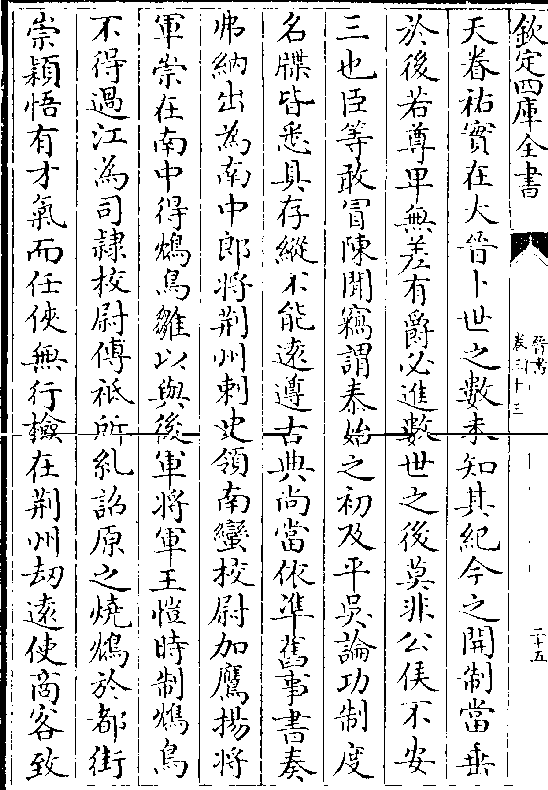 欽定四庫全書
晉書
卷三十三
二十五
天眷祐實在大晉卜世之數未知其紀今之開制當垂
於後若尊卑無差有爵必進數世之後莫非公侯不安
三也臣等敢冒陳聞竊謂泰始之初及平吳論功制度
名牒皆悉具存縱不能遠遵古典尚當依準舊事書奏
弗納出為南中郎將荆州刺史領南蠻校尉加鷹揚將
軍崇在南中得鴆鳥雛以與後軍將軍王愷時制鴆鳥
不得過江為司隷校尉傅祗所糺詔原之燒鴆於都街
崇頴悟有才氣而任俠無行檢在荆州刼遠使商客致